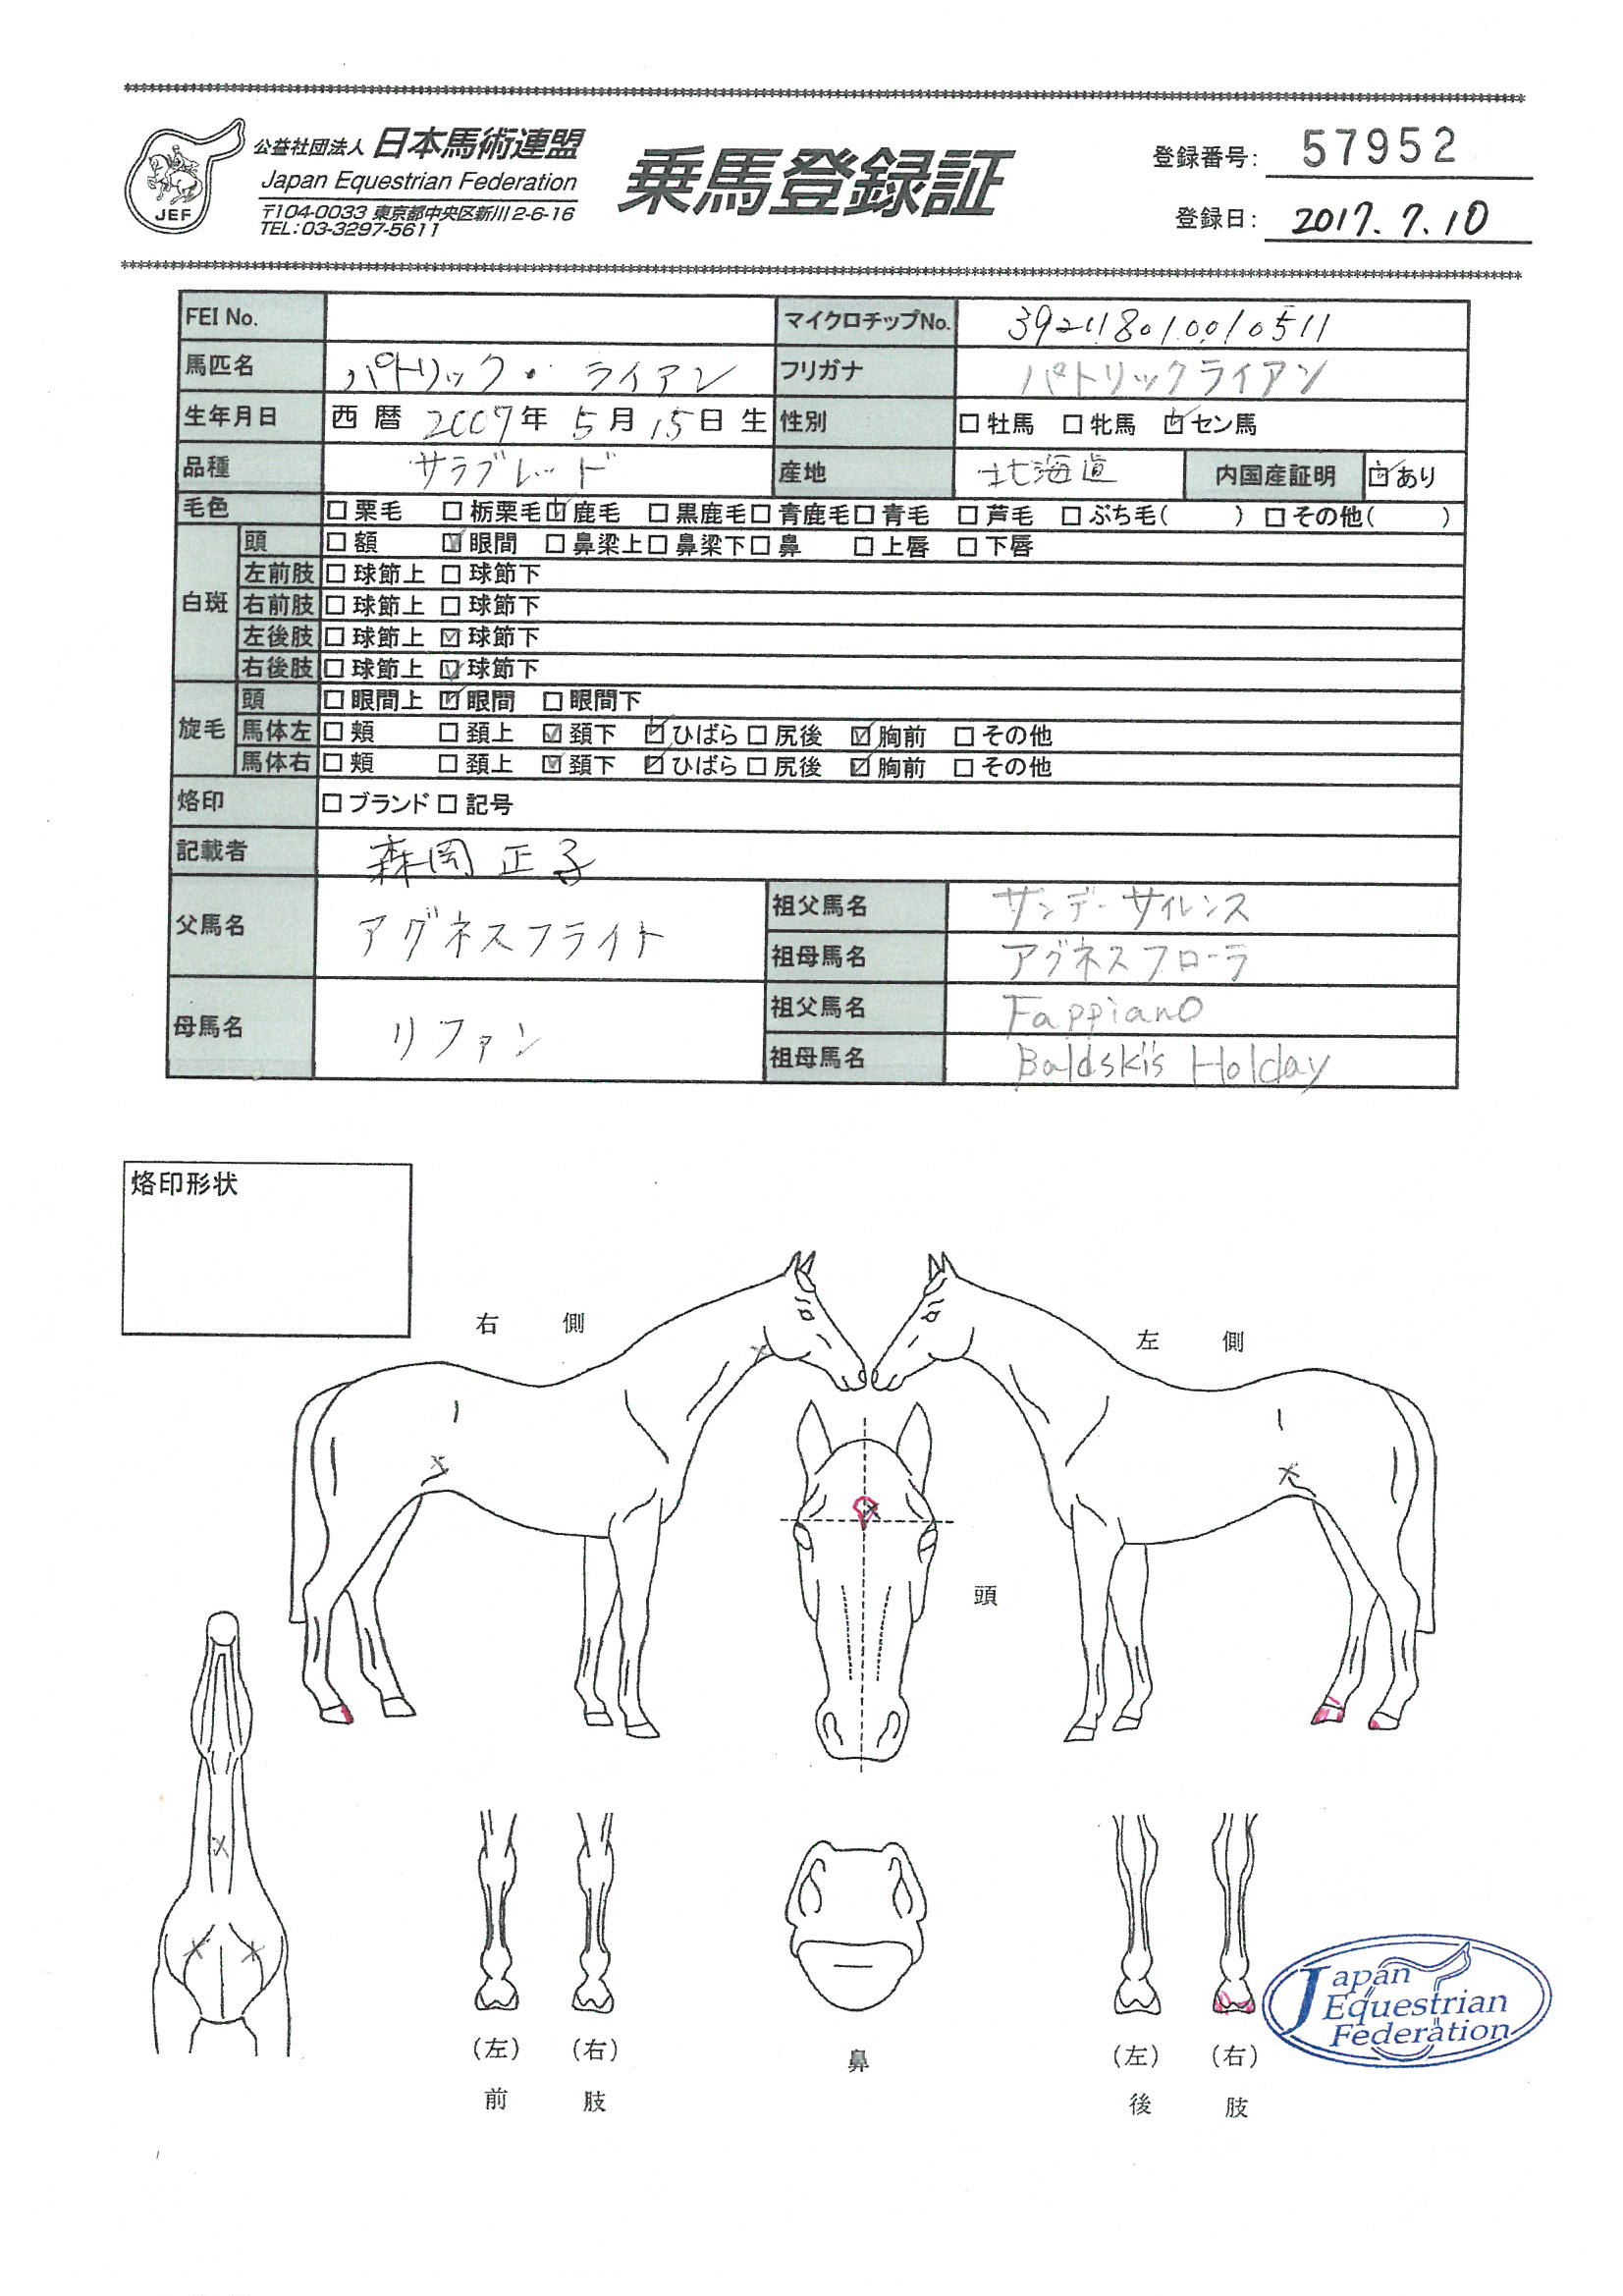 公益社団法人 日本馬術連盟
Japan Equestrian Federation
〒104-0033 東京都中央区新川2-6-16
TEL:03-3297-5611
JEF
乗馬登録証
登録番号: 57952
登録日: 2017.7.10
FEI No. マイクロチップNo. 392118010010511
馬匹名 パトリック・ライアン フリガナ パトリックライアン
生年月日 西暦 2007年 5月 15日 生 性別 □牡馬 □牝馬 ☑セン馬
品種 サラブレッド 産地 北海道 内国産証明 ☑あり
毛色 □栗毛 □栃栗毛 ☑鹿毛 □黒鹿毛 □青鹿毛 □青毛 □芦毛 □ぶち毛( ) □その他( )
白斑 頭 □額 ☑眼間 □鼻梁上 □鼻梁下 □鼻 □上唇 □下唇
左前肢 □球節上 □球節下
右前肢 □球節上 □球節下
左後肢 □球節上 ☑球節下
右後肢 □球節上 ☑球節下
旋毛 頭 □眼間上 ☑眼間 □眼間下
馬体左 □頬 □頚上 ☑頚下 ☑ひばら □尻後 ☑胸前 □その他
馬体右 □頬 □頚上 ☑頚下 ☑ひばら □尻後 ☑胸前 □その他
烙印 □ブランド □記号
記載者 森岡 正子
父馬名 アグネスフライト 祖父馬名 サンデーサイレンス
祖母馬名 アグネスフローラ
母馬名 リファン 祖父馬名 Fappiano
祖母馬名 Baldski's Holday
烙印形状
右側
左側
頭
(左) (右)
前肢
鼻
(左) (右)
後肢
Japan
Equestrian
Federation